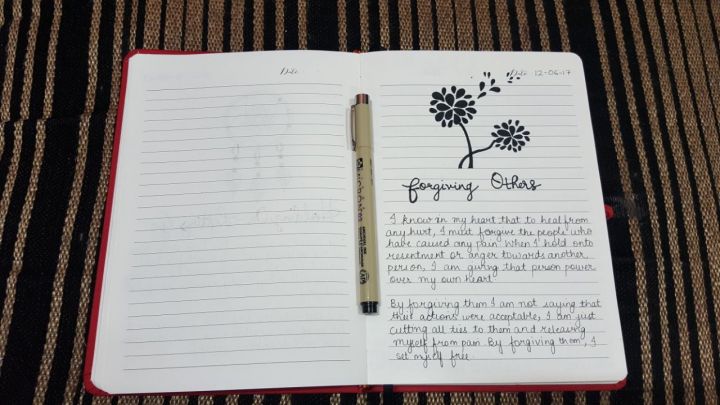 Date
Date 12-06-17
forgiving Others
I know in my heart that to heal from
any hurt, I must forgive the people who
have caused any pain. When I hold onto
resentment or anger towards another
person, I am giving that person power
over my own heart.
By forgiving them I am not saying that
their actions were acceptable, I am just
cutting all ties to them and releasing
myself from pain. By forgiving them, I
set myself free.